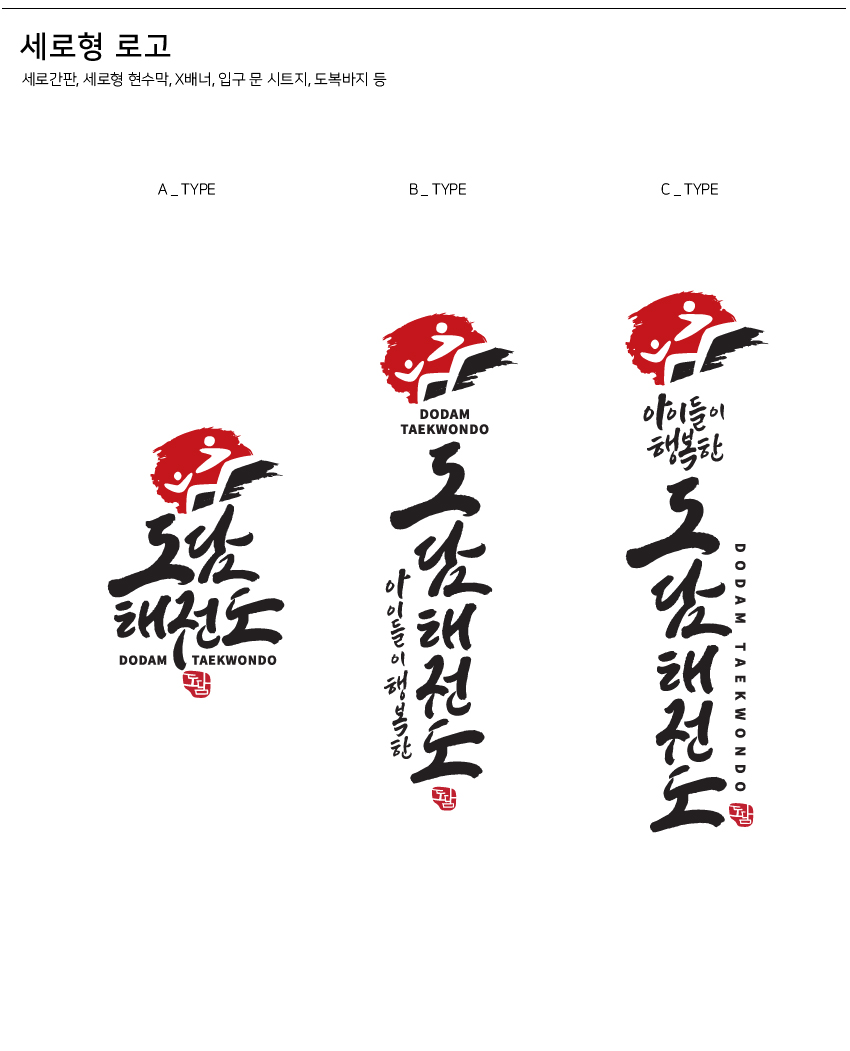 세로형 로고
세로간판, 세로형 현수막, X배너, 입구 문 시트지, 도복바지 등
A _ TYPE
도담
태권도
DODAM TAEKWONDO
도담
B _ TYPE
DODAM
TAEKWONDO
도담태권도
아이들이행복한
도담
C _ TYPE
아이들이
행복한
도담태권도
DODAM TAEKWONDO
도담